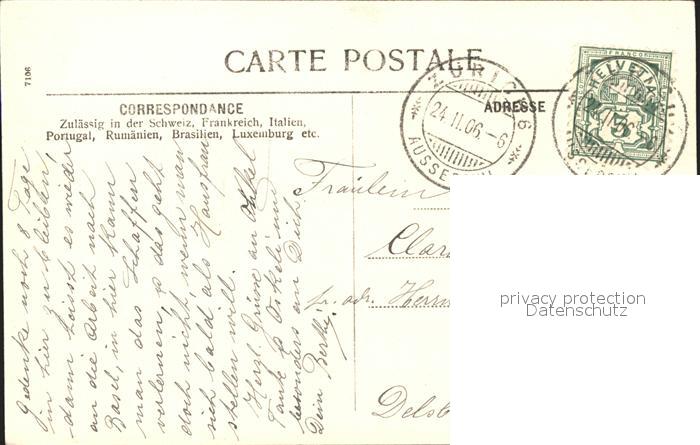 7106
CARTE POSTALE
CORRESPONDANCE
Zulässig in der Schweiz, Frankreich, Italien,
Portugal, Rumänien, Brasilien, Luxemburg etc.
ADRESSE
ZÜRICH 6
24.II.06.-6
AUSSERSIHL
FRANCO
HELVETIA
5
Gedenke noch 8 Tage
hier zu bleiben,
dann heisst es wieder
an die Arbeit nach
Basel, in hier kann
man das Schaffen
verlernen, & das geht
doch nicht, wenn man
sich bald als Hausfrau
stellen will.
Herzl. Grüsse an Onkel
Tante & Oskeli
besonders an Dich
Dein Berthi.
Fräulein
Clar
pr. adr. Herrn
Delsb
privacy protection
Datenschutz